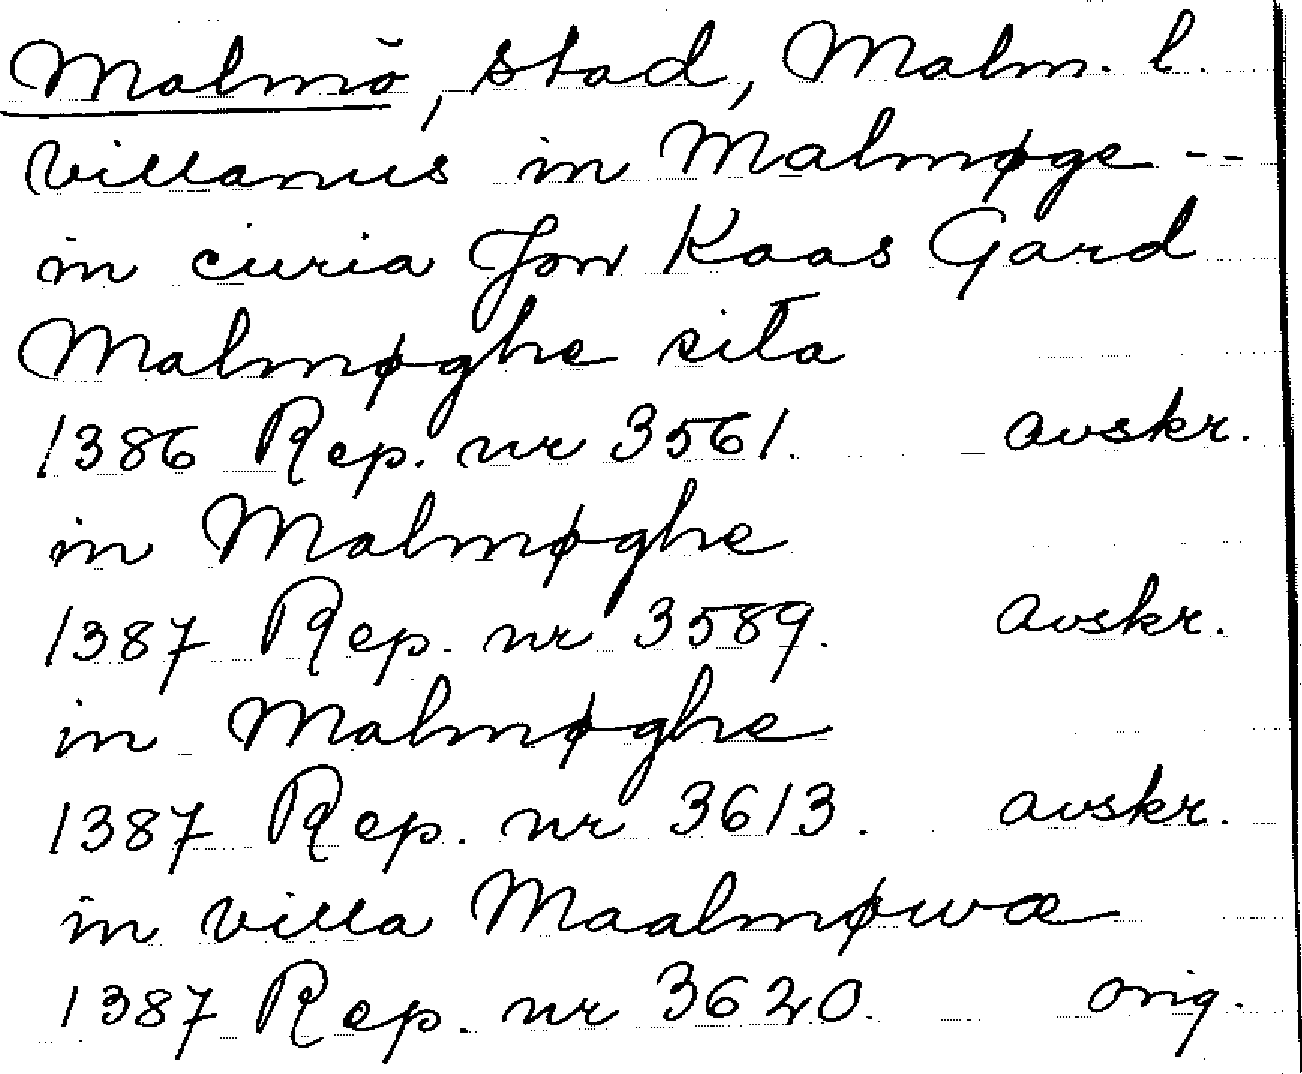 Malmö, stad, Malm. l.
villanus in Malmøge --
in curia Jon Kaas Gard
Malmøghe sita
1386 Rep. nr 3561. avskr.
in Malmøghe
1387 Rep. nr 3589. avskr.
in Malmøghe
1387 Rep. nr 3613. avskr.
in villa Maalmøwæ
1387 Rep. nr 3620. orig.